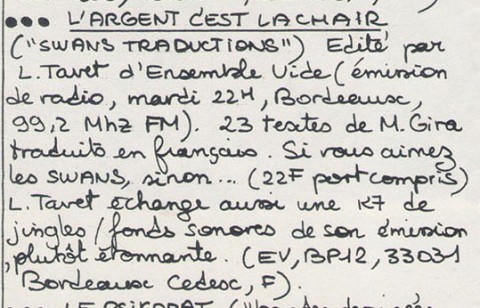 ••• L'ARGENT C'EST LA CHAIR
("SWANS TRADUCTIONS") Edité par
L. Tavet d'Ensemble Vide (émission
de radio, mardi 22H, Bordeaux,
99,2 Mhz FM). 23 textes de M. Gira
traduits en français. Si vous aimez
les SWANS, sinon... (22F port compris)
L. Tavet échange aussi une K7 de
jingles / fonds sonores de son émission
, plutôt étonnante. (EV, BP12, 33031
Bordeaux Cedex, F).